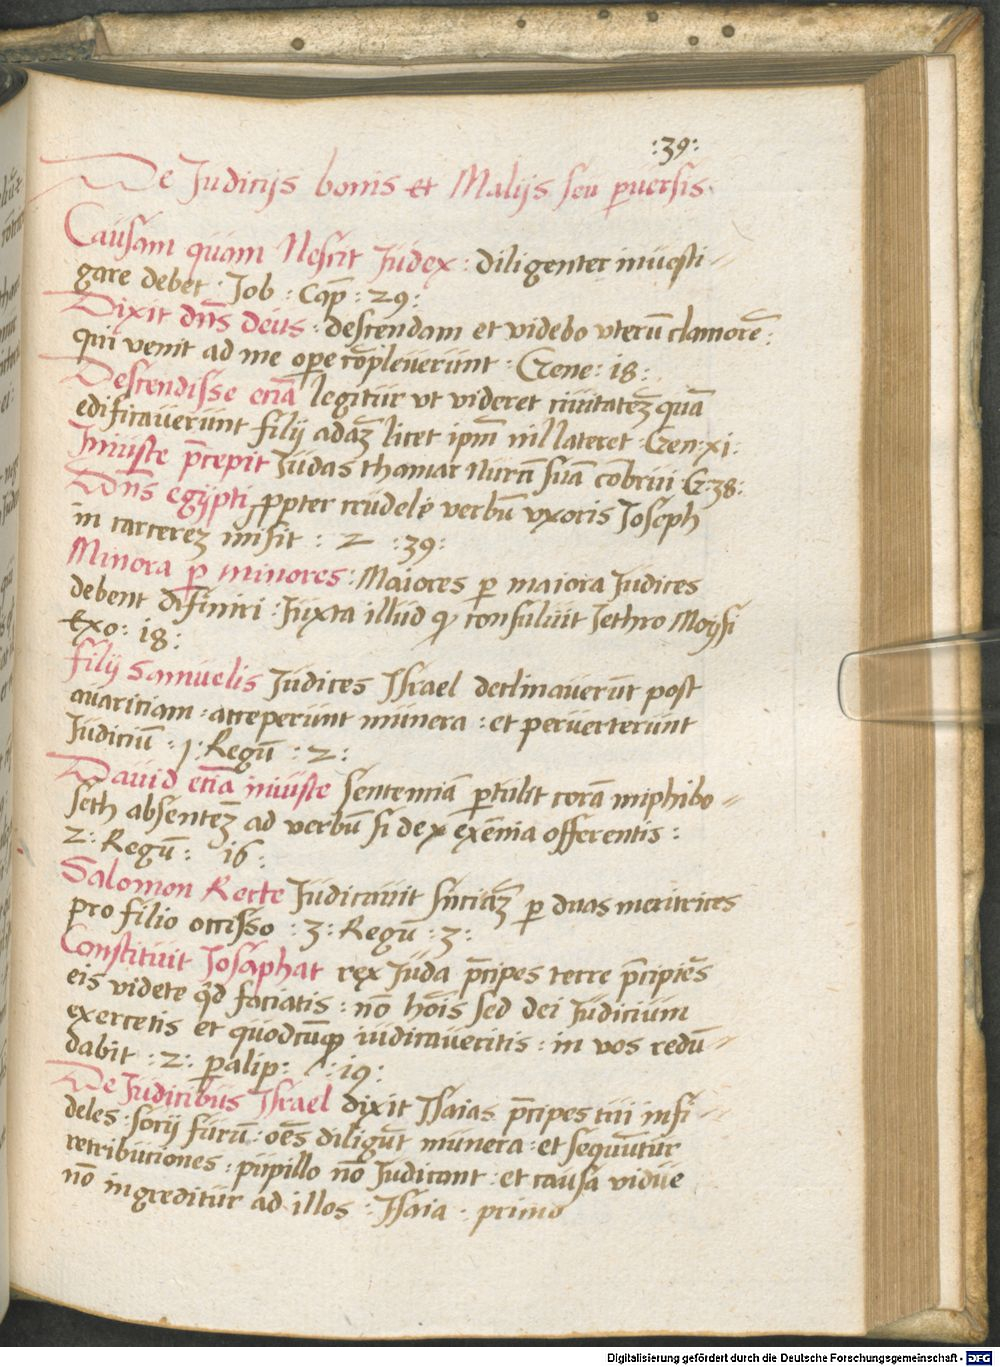 :39:
De Judicijs bonis et Malijs seu pversis.
Causam quam Nescit Judex : diligenter inuesti=
gare debet : Job : Cap : 29 :
Dixit dns deus : descendam et videbo vterū clamorē :
qui venit ad me ope cōpleuerunt : Gene : 18 :
Descendisse eciā legitur vt videret ciuitatez quā
edificauerunt filij adaz licet ipm nil lateret : Gen : xi :
Iniuste pcepit Judas thamar Nurū suā cōbruī : G : 38 :
Dns egypti ppter crudele verbū vxoris Joseph
in carcerez misit : 2 : 39 :
Minora p minores : Maiores p maiora Judices
debent difiniri : Juxta illud qd consuluit Jethro Moysi
Exo : 18 :
filij Samuelis Judices Israel declinauerūt post
auaritiam : acceperunt munera : et peruerterunt
Judiciū : 1 : Regū : 2 :
Dauid eciā iniuste sentenciā ptulit corā miphibo=
seth absentez ad verbū si dex exēnia offerentis :
2 : Regū : 16 :
Salomon Recte Judicauit snciaz p duas meritrices
pro filio occisso : 3 : Regū : 3 :
Constituit Josaphat rex Juda pcipes terre pcipiēs
eis videte qd faciatis : nō hōis sed dei Judicium
exercetis et quodcūqз iudicaueritis : in vos redū=
dabit : 2 : palip : c : 19 :
De Judicibus Israel dixit Isaias pcipes tui infi=
deles : socij furū : oēs diligūt munera : et sequūtur
retribuciones : pupillo nō Judicant : et causa vidue
nō ingreditur ad illos : Isaia : primo
Digitalisierung gefördert durch die Deutsche Forschungsgemeinschaft - DFG